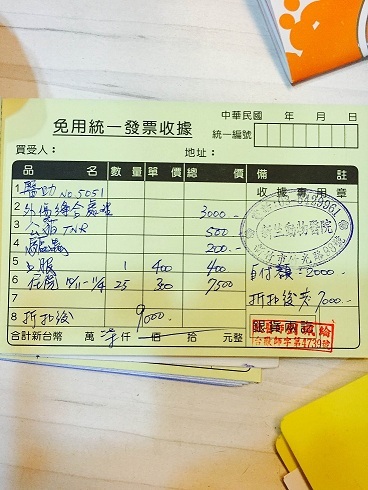 免用統一發票收據
中華民國 年 月 日
統一編號
買受人： 地址：
品名 數量 單價 總價 備註
1 醫助 NO 5051 收據專用章
2 外傷縫合處置 3000.-
3 公貓 TNR 500
4 驅蟲 200.-
5 1 400 400 自付額：2000.-
6 住院 10/11-11/4 25 300 7500
7 折扣後 7000.-
8 折扣後 9000.-
合計新台幣 萬 仟 佰 拾 元整 銀貨兩訖
動物醫院
第4739號